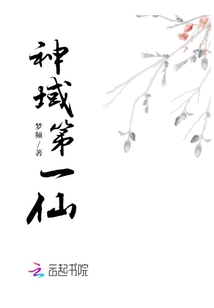 神域第一仙
梦颍/著
云起书院